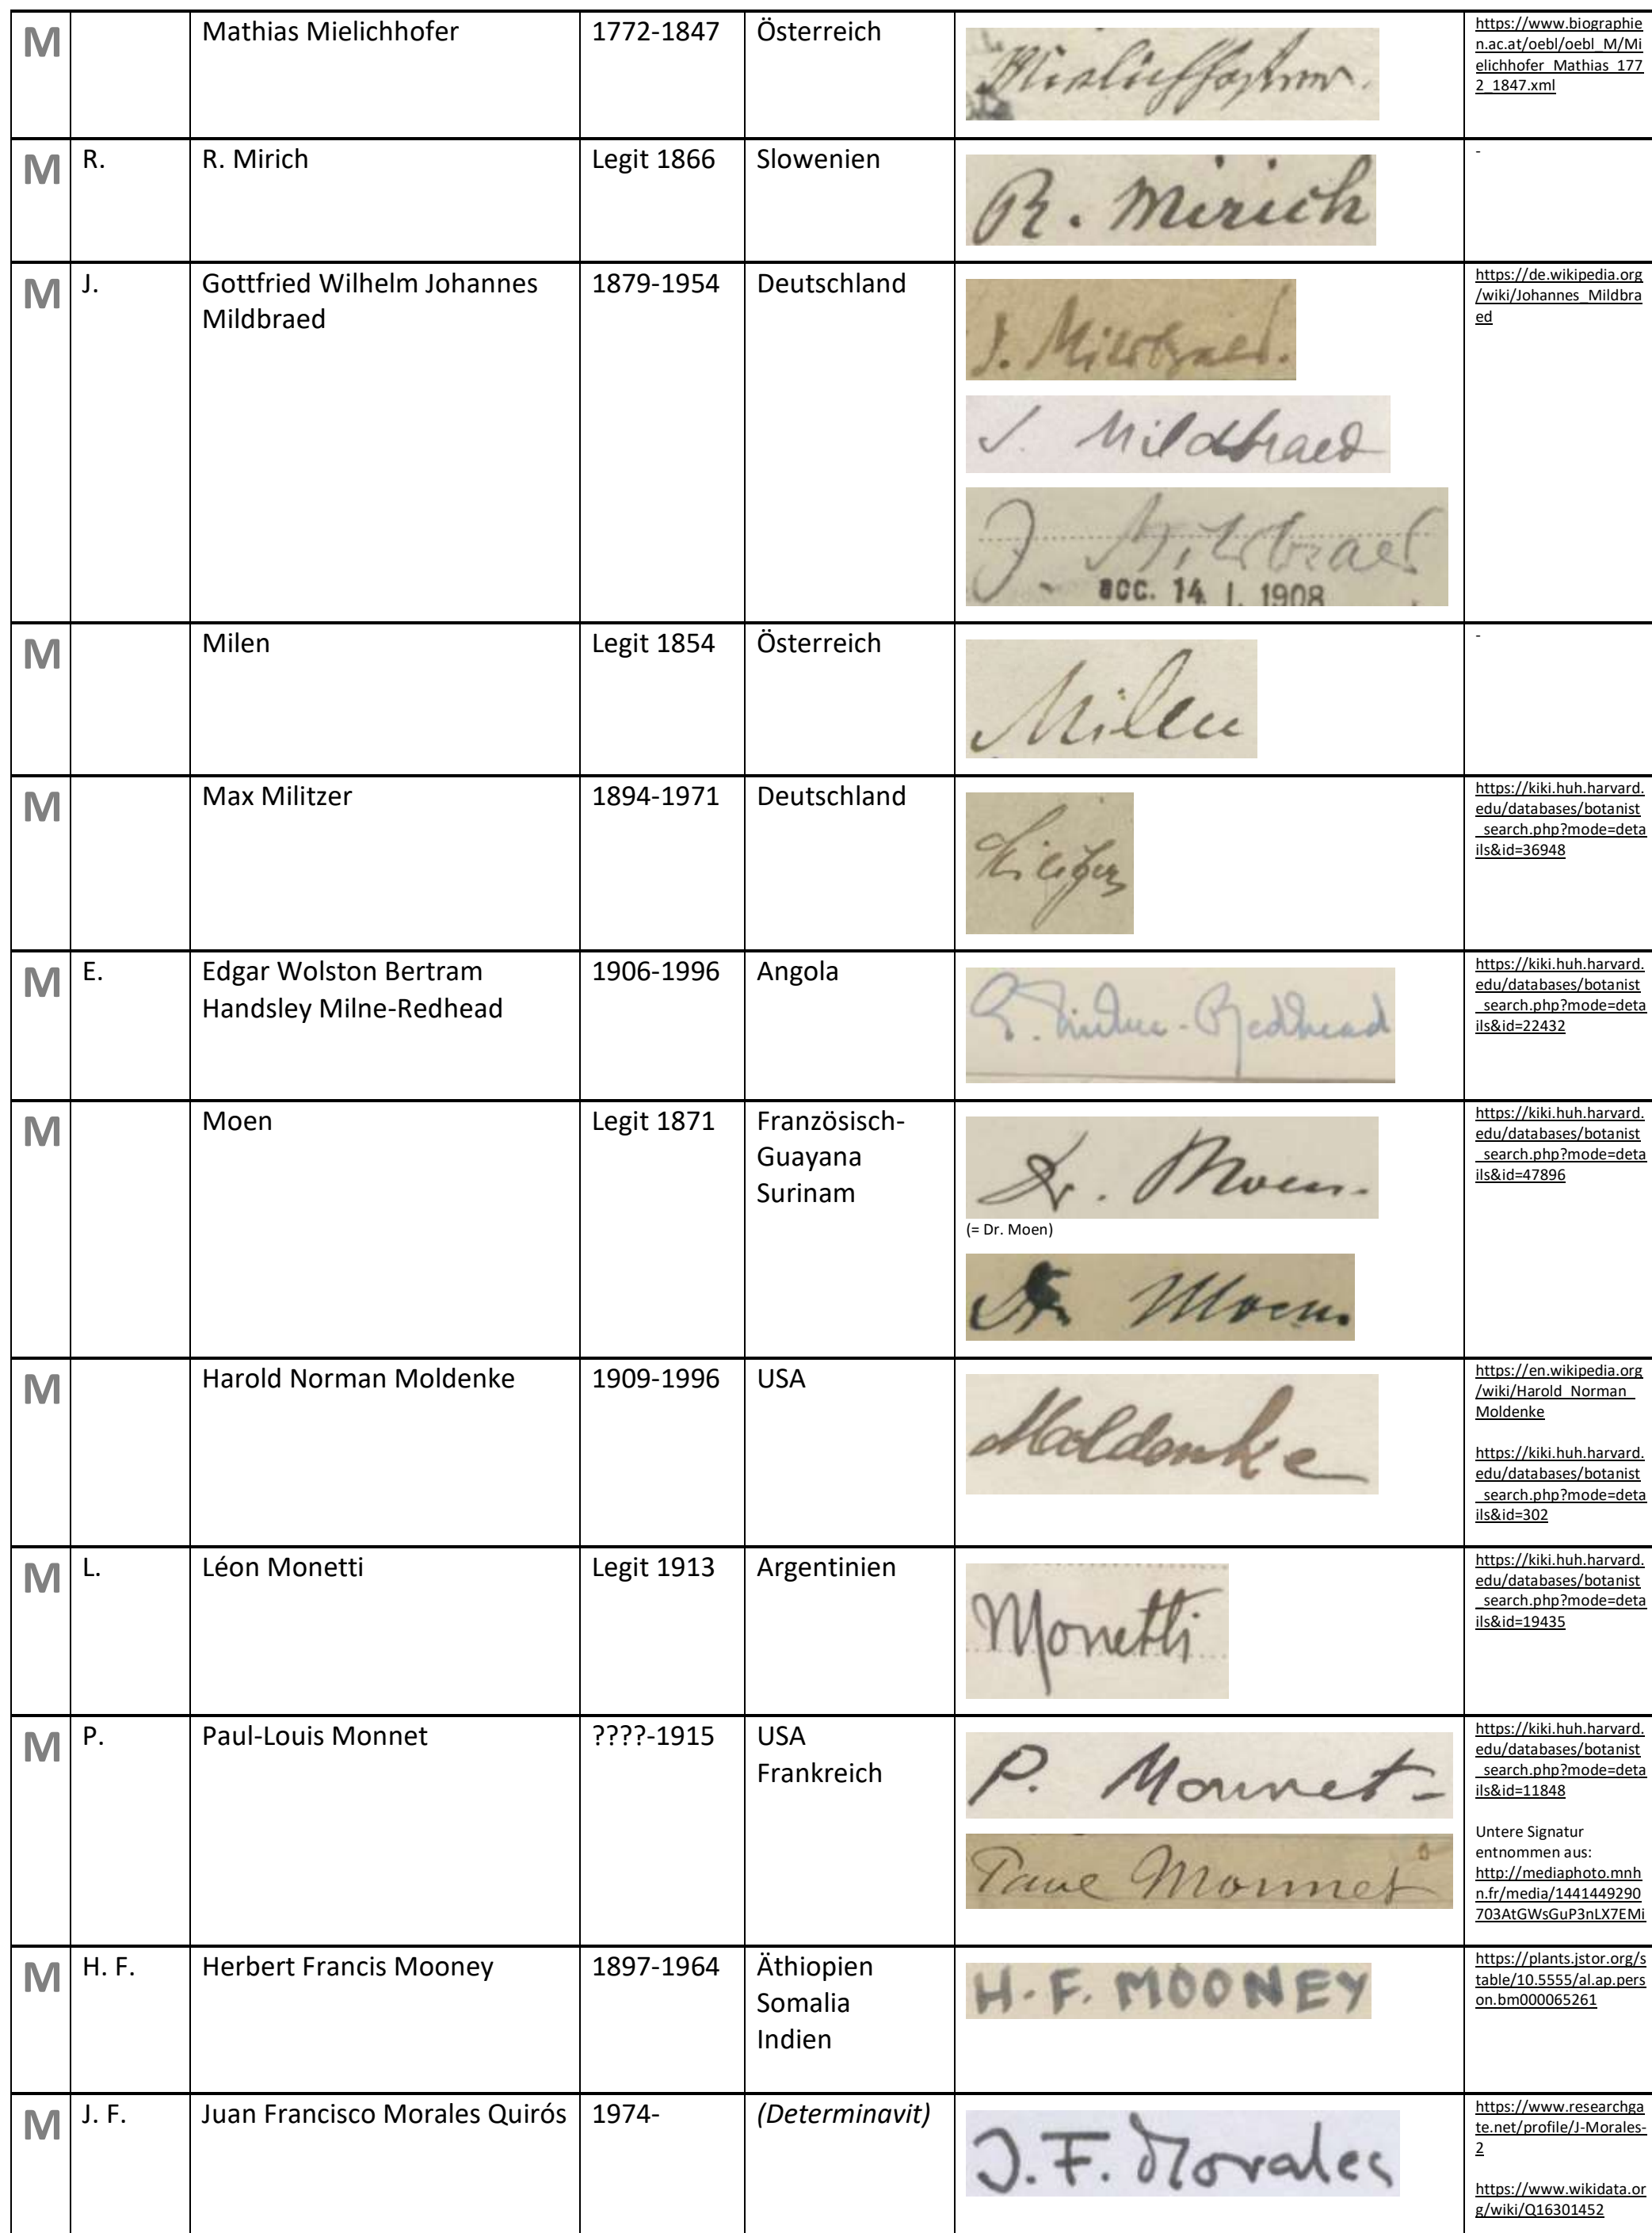 M
Mathias Mielichhofer
1772-1847
Österreich
Mielichhofer.
https://www.biographie
n.ac.at/oebl/oebl_M/Mi
elichhofer_Mathias_177
2_1847.xml
M
R.
R. Mirich
Legit 1866
Slowenien
R. Mirich
-
M
J.
Gottfried Wilhelm Johannes
Mildbraed
1879-1954
Deutschland
J. Mildbraed.
J. Mildbraed
J. Mildbraed
acc. 14. I. 1908
https://de.wikipedia.org
/wiki/Johannes_Mildbra
ed
M
Milen
Legit 1854
Österreich
Milen
-
M
Max Militzer
1894-1971
Deutschland
https://kiki.huh.harvard.
edu/databases/botanist
_search.php?mode=deta
ils&id=36948
M
E.
Edgar Wolston Bertram
Handsley Milne-Redhead
1906-1996
Angola
E. Milne-Redhead
https://kiki.huh.harvard.
edu/databases/botanist
_search.php?mode=deta
ils&id=22432
M
Moen
Legit 1871
Französisch-
Guayana
Surinam
Dr. Moen.
(= Dr. Moen)
Dr Moen.
https://kiki.huh.harvard.
edu/databases/botanist
_search.php?mode=deta
ils&id=47896
M
Harold Norman Moldenke
1909-1996
USA
Moldenke
https://en.wikipedia.org
/wiki/Harold_Norman_
Moldenke
https://kiki.huh.harvard.
edu/databases/botanist
_search.php?mode=deta
ils&id=302
M
L.
Léon Monetti
Legit 1913
Argentinien
Monetti
https://kiki.huh.harvard.
edu/databases/botanist
_search.php?mode=deta
ils&id=19435
M
P.
Paul-Louis Monnet
????-1915
USA
Frankreich
P. Monnet-
Paul Monnet
https://kiki.huh.harvard.
edu/databases/botanist
_search.php?mode=deta
ils&id=11848
Untere Signatur
entnommen aus:
http://mediaphoto.mnh
n.fr/media/1441449290
703AtGWsGuP3nLX7EMi
M
H. F.
Herbert Francis Mooney
1897-1964
Äthiopien
Somalia
Indien
H. F. MOONEY
https://plants.jstor.org/s
table/10.5555/al.ap.pers
on.bm000065261
M
J. F.
Juan Francisco Morales Quirós
1974-
(Determinavit)
J. F. Morales
https://www.researchga
te.net/profile/J-Morales-
2
https://www.wikidata.or
g/wiki/Q16301452